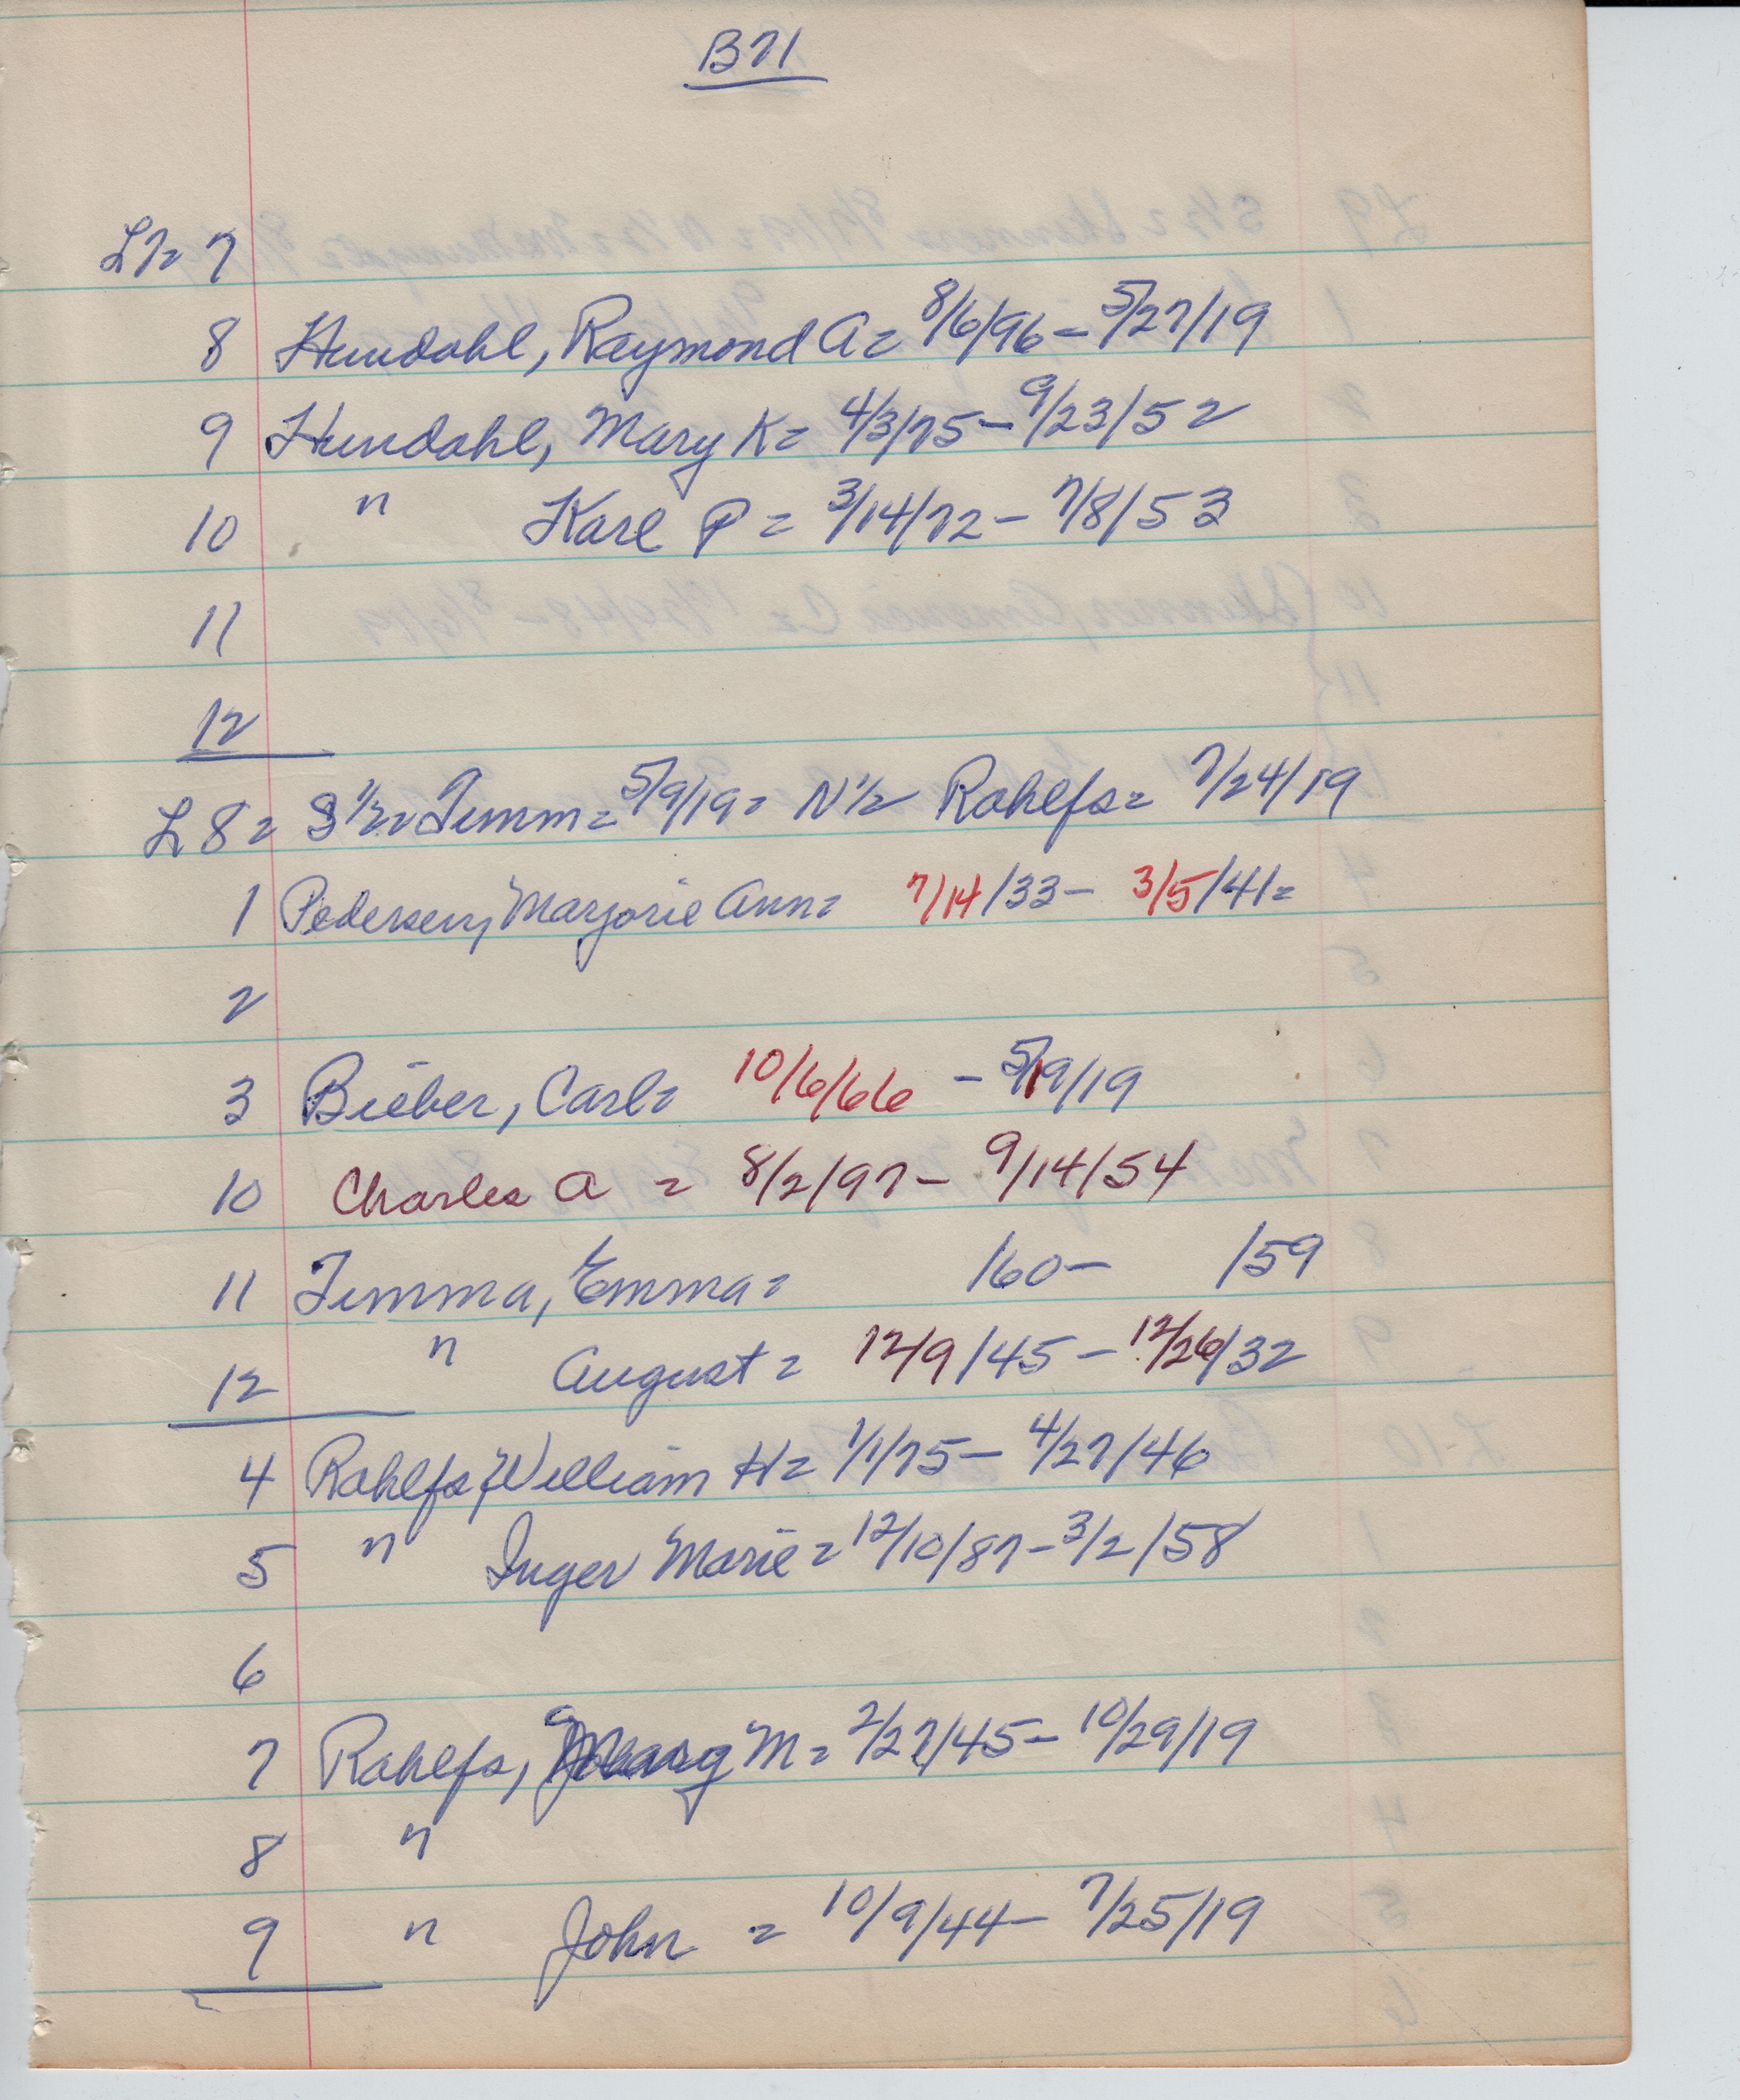 B71
L7= 7
8 Hundahl, Raymond A= 8/6/96 - 5/27/19
9 Hundahl, Mary K= 4/3/75 - 9/23/52
10 " Karl P = 3/14/72 - 7/8/53
11
12
L8= S 1/2= Timm= 5/9/19= N 1/2 Rohlfs= 7/24/19
1 Pedersen, Marjorie Ann= 7/14/33 - 3/5/41=
2
3 Bieber, Carl= 10/6/66 - 5/19/19
10 Charles A = 8/2/97 - 9/14/54
11 Timma, Emma= /60 - /59
12 " August= 12/9/45 - 12/26/32
4 Rohlfs, William H= 1/1/75 - 4/27/46
5 " Inger Marie= 12/10/87 - 3/2/58
6
7 Rohlfs, M= 2/27/45 - 10/29/19
8 "
9 " John = 10/9/44 - 7/25/19